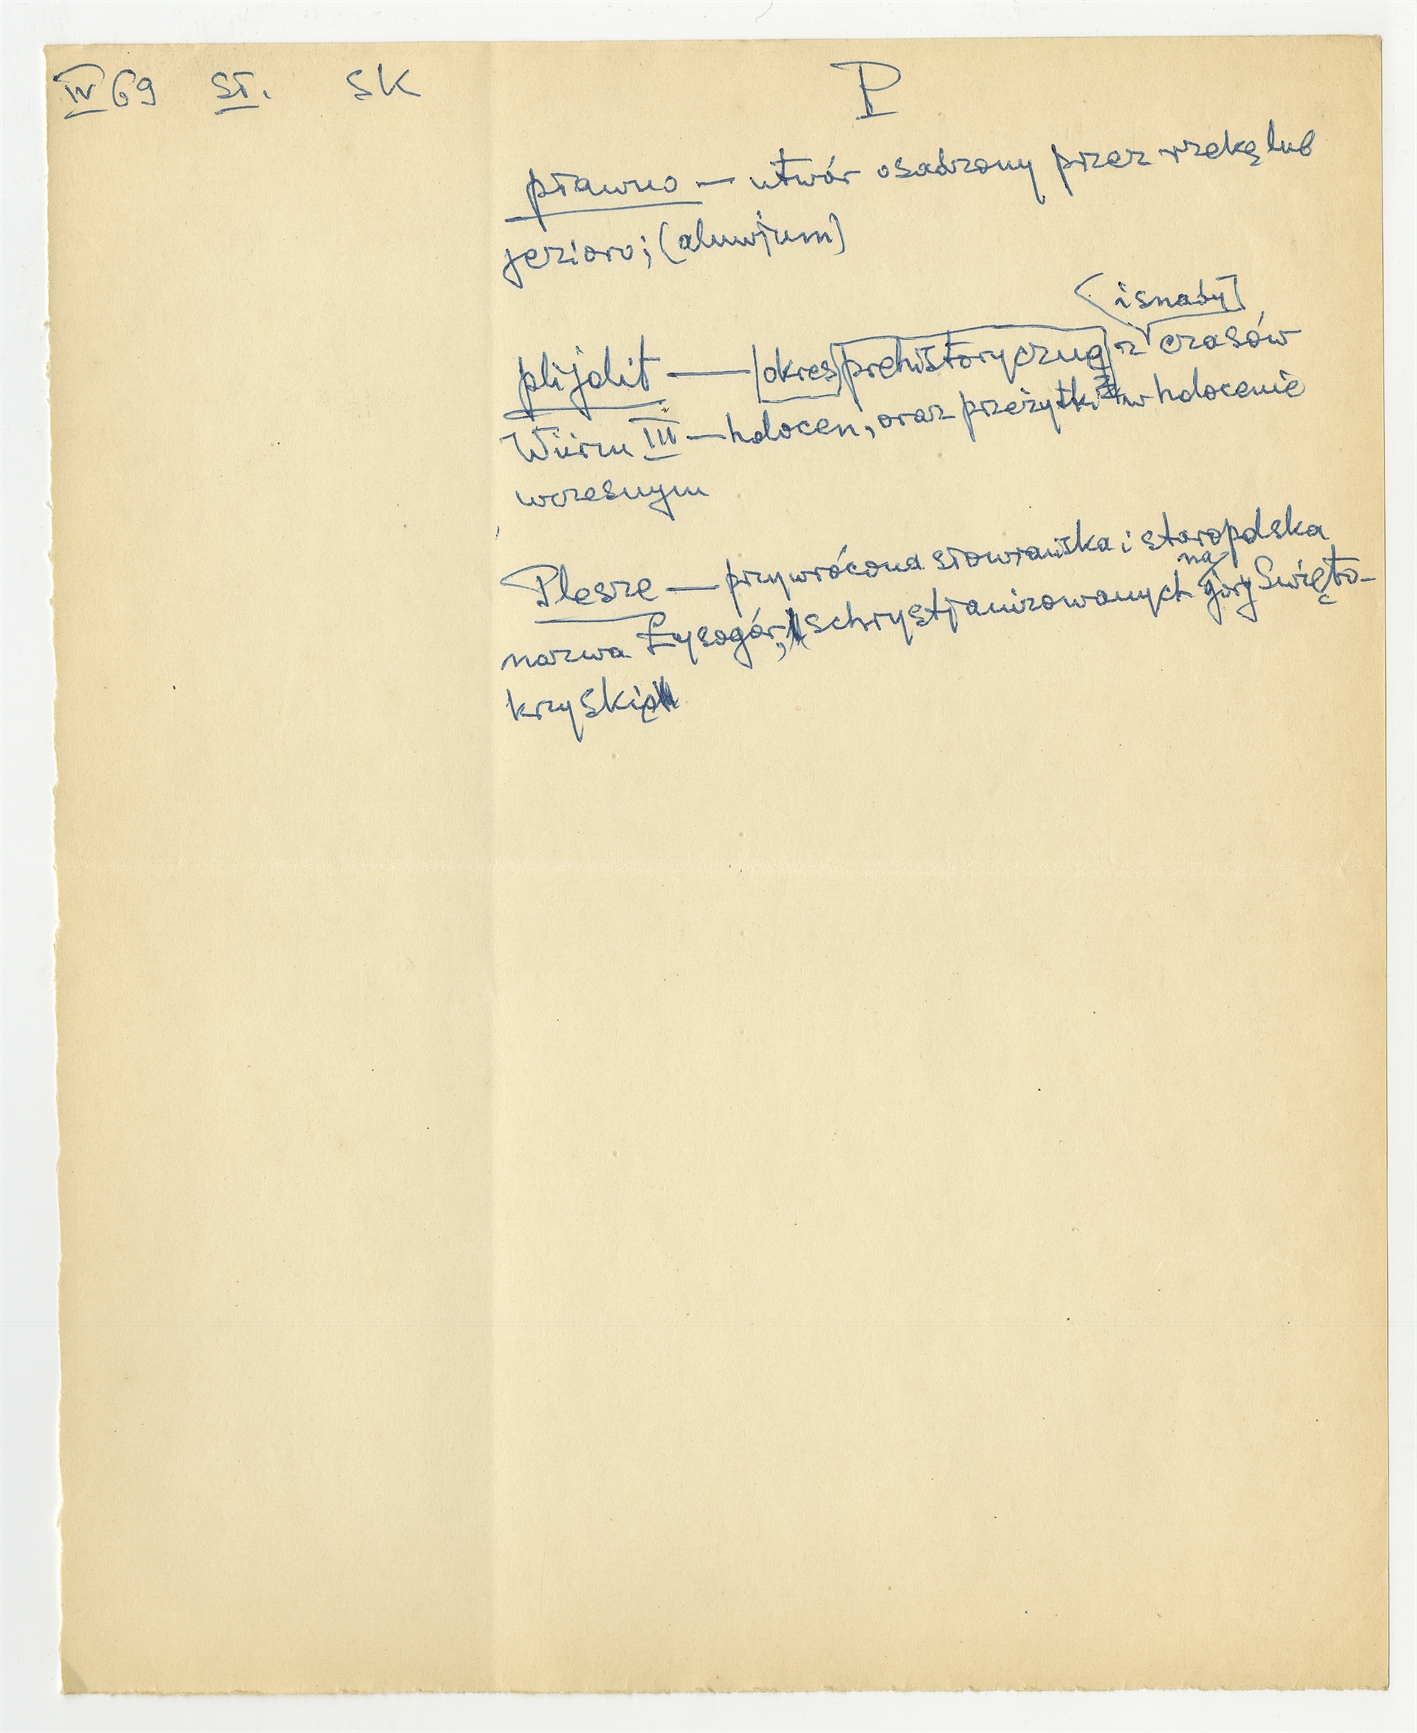 IV 69 St. SK
P
pławno — utwór osadzony przez rzekę lub
jezioro; (aluwjum)
[i snady]
plijolit — [okres] prehistoryczny z czasów
Würm III — holocen, oraz przeżytki w holocenie
wczesnym
Plesze — przywrócona słowiańska i staropolska
na
nazwa Łysogór, schrystjanizowanych góry Święto-
krzyskie